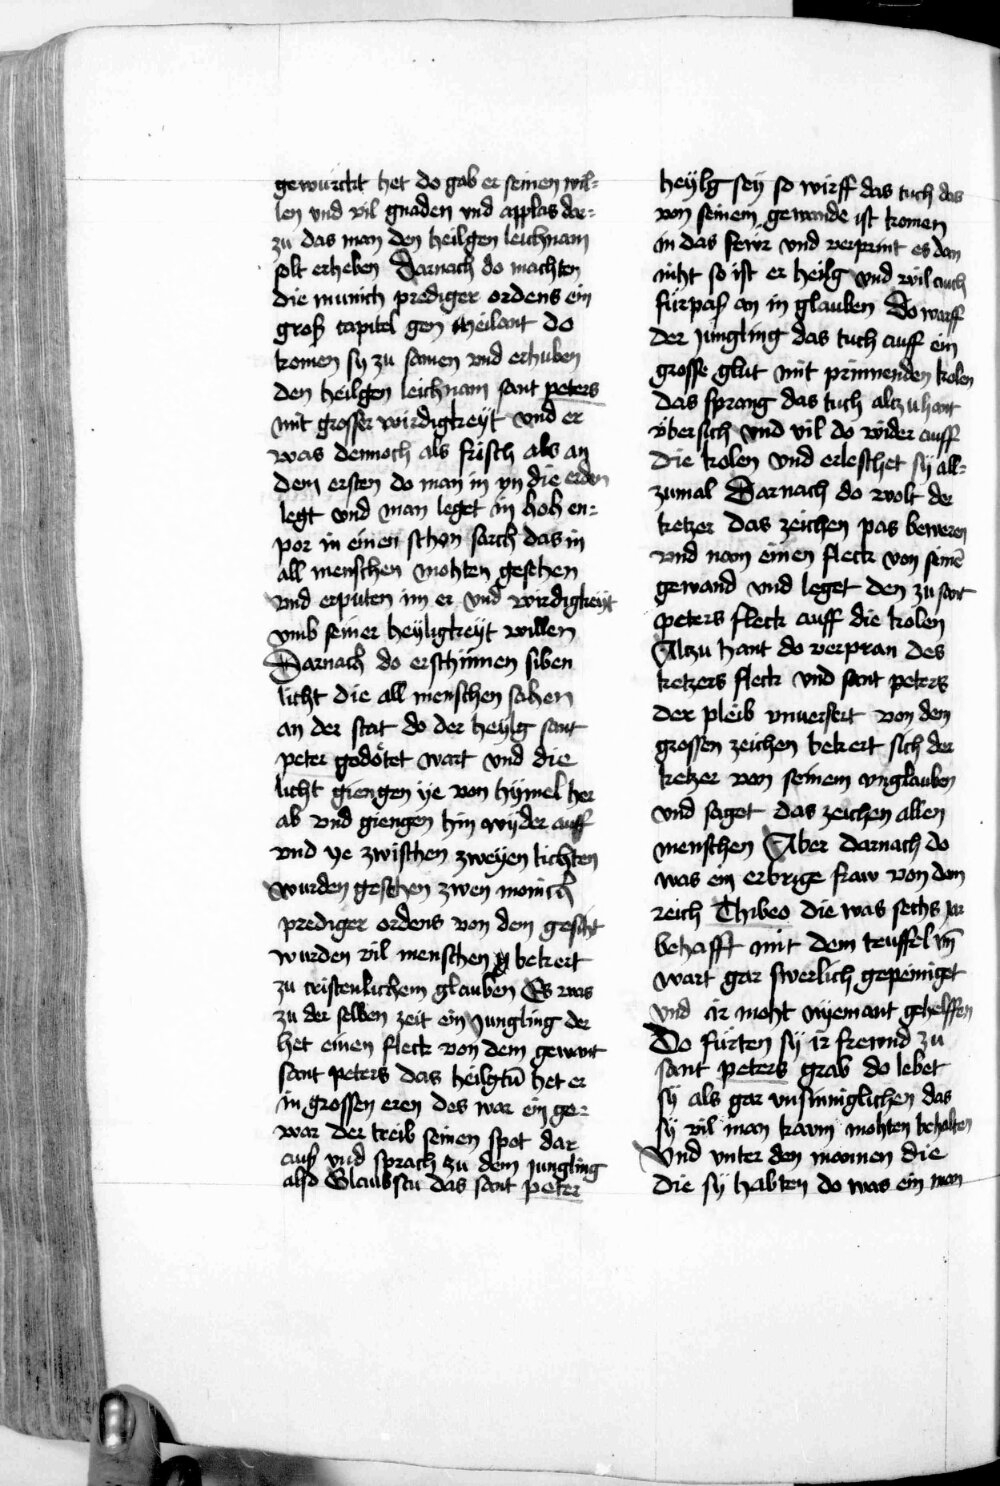 gewurckt het do gab er seinen wil-
len vnd vil gnaden vnd applas dar-
zu das man den heilgen leichnam
solt erheben Darnach do machten
die munich prediger ordens ein
groß capitel gen Meilant do
komen sy zu samen vnd erhuben
den heilgen leichnam sant peters
mit grosser wirdigkeyt vnd er
was dennoch als frisch als an
dem ersten do man in yn die erden
legt vnd man leget in hoh en-
por in einen schon sarch das in
all menschen mohten gesehen
vnd erputen im er vnd wirdigkeyt
vmb seiner heyligkeyt willen
Darnach do erschinnen siben
licht die all menschen sahen
an der stat do der heylg sant
peter gedötet wart vnd die
licht giengen ye von hymel her
ab vnd giengen hin wyder auff
vnd ye zwischen zweyen lichten
wurden gesehen zwen monich
prediger ordens von dem gesicht
wurden vil menschen bekert
zu cristenlichem glauben Es was
zu der selben zeit ein Jungling der
het einen fleck von dem gewant
sant peters das heilgtū het er
in grossen eren des war ein ge-
war der treib seinen spot dar
auß vnd sprach zu dem jungling
also Glaubstu das sant peter
heylg sey so wirff das tuch das
von seinem gewande ist komen
in das fewr vnd verprint es dan
niht so ist er heilg vnd wil auch
fürpaß an in glauben Do warff
der jüngling das tuch auff ein
grosse glut mit prinnenden kolen
das sprang das tuch alczuhant
vbersich vnd vil do wider auff
die kolen vnd erleschet sy all-
zumal Darnach do wolt der
ketzer das zeichen pas beweren
vnd nam einen fleck von seinē
gewand vnd leget den zu sant
peters fleck auff die kolen
Alczu hant do verpran des
ketzers fleck vnd sant peters
der pleib vnuersert von dem
grossen zeichen bekert sich der
ketzer von seinem vnglauben
vnd saget das zeichen allen
menschen Aber darnach do
was ein erbrige fraw von dem
reich Thibeo die was sechs jar
behafft mit dem teuffel vn̄
wart gar swerlich gepeiniget
vnd ir moht nyemant gehelffen
Do fürten sy ir frewnd zu
sant peters grab do lebet
sy als gar vnsinniglichen das
sy vil man kawm mohten behalten
Vnd vnter den mannen die
die sy habten do was ein man